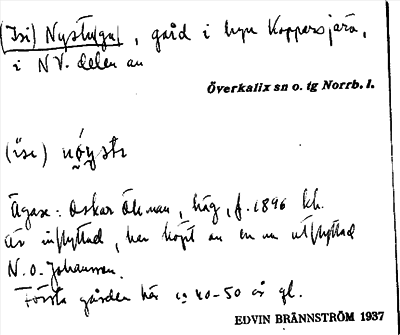 (Isi) Nystugu, gård i byn Koppersjärv,
i NV. delen av
Överkalix sn o. tg Norrb. l.
(ise) nóysti
Ägare: Oskar Öhman, häg, f. 1896 hh.
är inflyttad, har köpt av en nu utflyttad
N. O. Johansson.
Första gården här ca 40-50 år gl.
EDVIN BRÄNNSTRÖM 1937